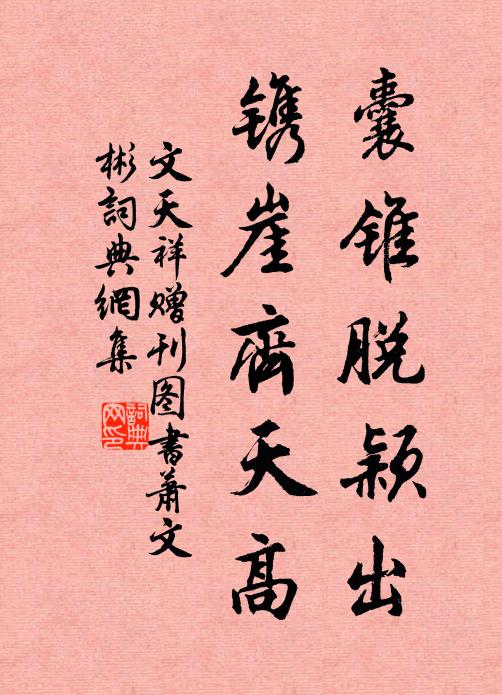 囊锥脱颖出
镌崖齊天高
文天祥赠刊图書萧文
彬詞典網集
詞典
网印